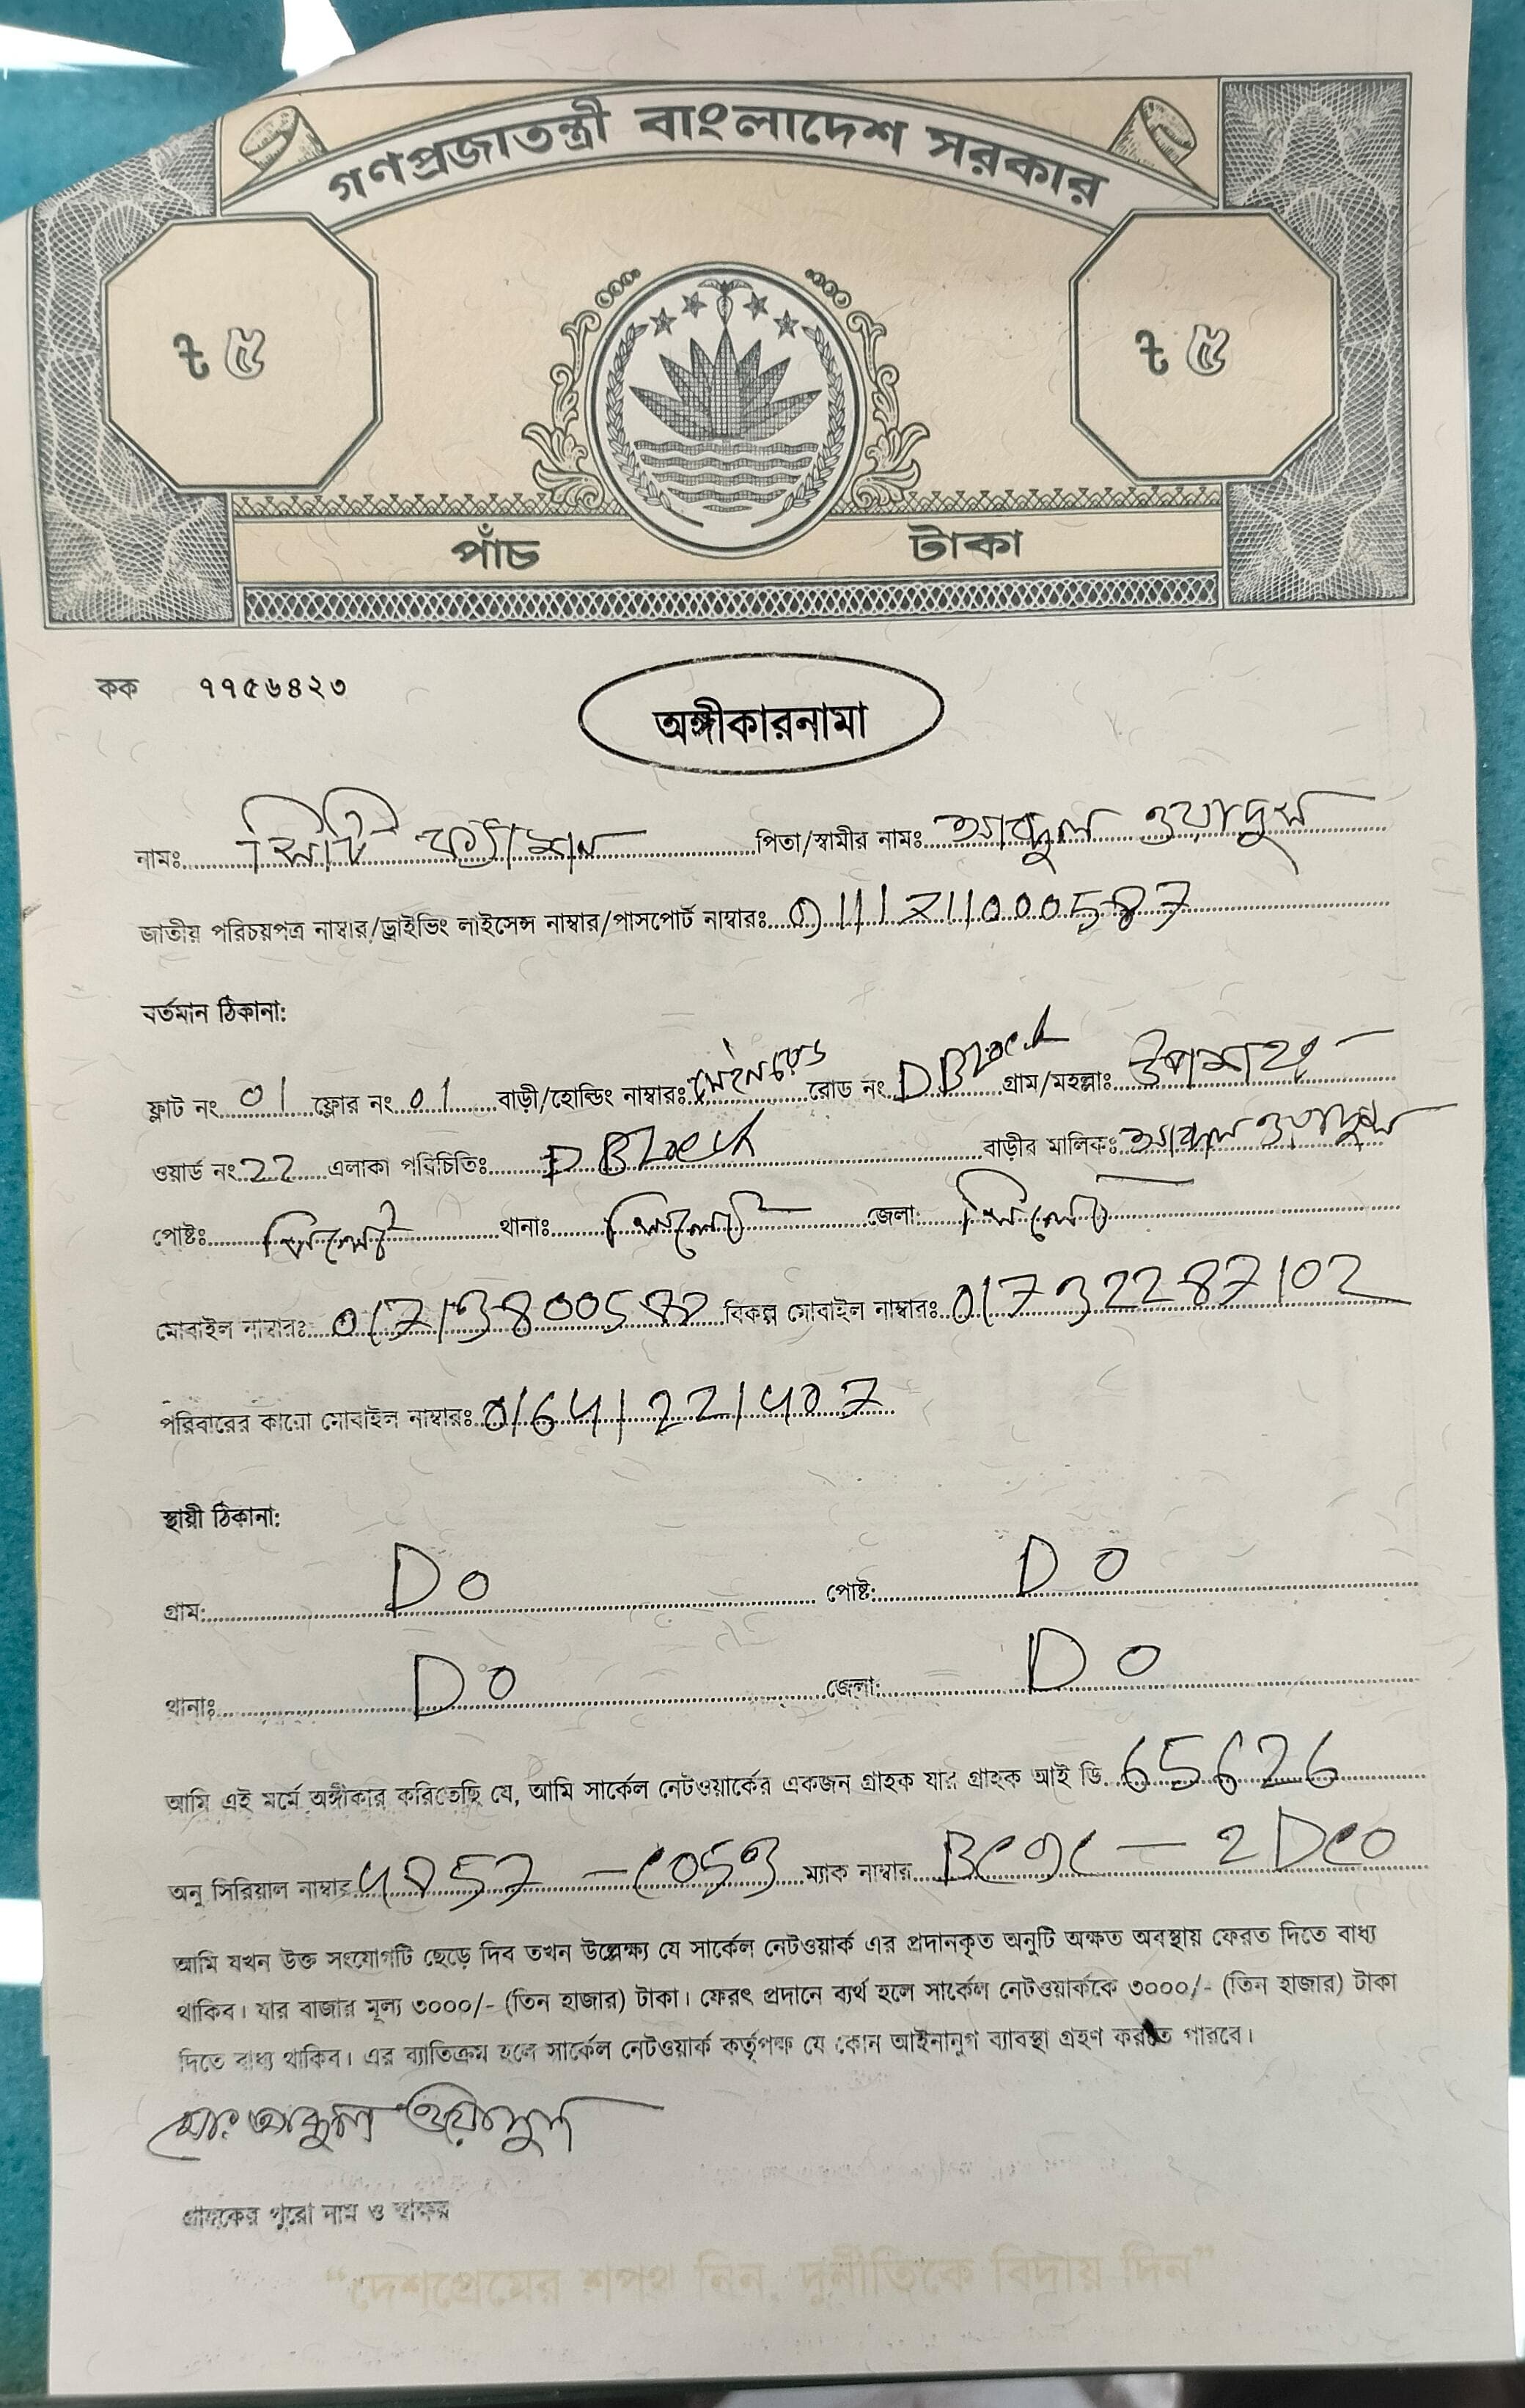 গণপ্রজাতন্ত্রী বাংলাদেশ সরকার
৳ ৫ ৳ ৫
পাঁচ টাকা
কক ৭৭৫৬৪২৩
অঙ্গীকারনামা
নামঃ সিটি ফ্যাশন পিতা/স্বামীর নামঃ আব্দুল ওয়াদুদ
জাতীয় পরিচয়পত্র নাম্বার/ড্রাইভিং লাইসেন্স নাম্বার/পাসপোর্ট নাম্বারঃ
বর্তমান ঠিকানা:
ফ্লাট নং 01 ফ্লোর নং 01 বাড়ী/হোল্ডিং নাম্বারঃ মেইনরোড রোড নং D Block গ্রাম/মহল্লাঃ উপশহর
ওয়ার্ড নং 22 এলাকা পরিচিতিঃ D Block বাড়ীর মালিকঃ আব্দুল ওয়াদুদ
পোষ্টঃ সিলেট থানাঃ সিলেট জেলা: সিলেট
মোবাইল নাম্বারঃ বিকল্প মোবাইল নাম্বারঃ 01732287102
পরিবারের কারো মোবাইল নাম্বারঃ 01641221407
স্থায়ী ঠিকানা:
গ্রাম: DO পোষ্ট: DO
থানাঃ DO জেলা: DO
আমি এই মর্মে অঙ্গীকার করিতেছি যে, আমি সার্কেল নেটওয়ার্কের একজন গ্রাহক যার গ্রাহক আই ডি 65626
অনু সিরিয়াল নাম্বার ম্যাক নাম্বার
আমি যখন উক্ত সংযোগটি ছেড়ে দিব তখন উল্লেক্ষ্য যে সার্কেল নেটওয়ার্ক এর প্রদানকৃত অনুটি অক্ষত অবস্থায় ফেরত দিতে বাধ্য
থাকিব। যার বাজার মূল্য ৩০০০/- (তিন হাজার) টাকা। ফেরৎ প্রদানে ব্যর্থ হলে সার্কেল নেটওয়ার্ককে ৩০০০/- (তিন হাজার) টাকা
দিতে বাধ্য থাকিব। এর ব্যাতিক্রম হলে সার্কেল নেটওয়ার্ক কর্তৃপক্ষ যে কোন আইনানুগ ব্যাবস্থা গ্রহণ করতে পারবে।
মোঃ আব্দুল ওয়াদুদ
গ্রাহকের পুরো নাম ও স্বাক্ষর
“দেশপ্রেমের শপথ নিন, দুর্নীতিকে বিদায় দিন”